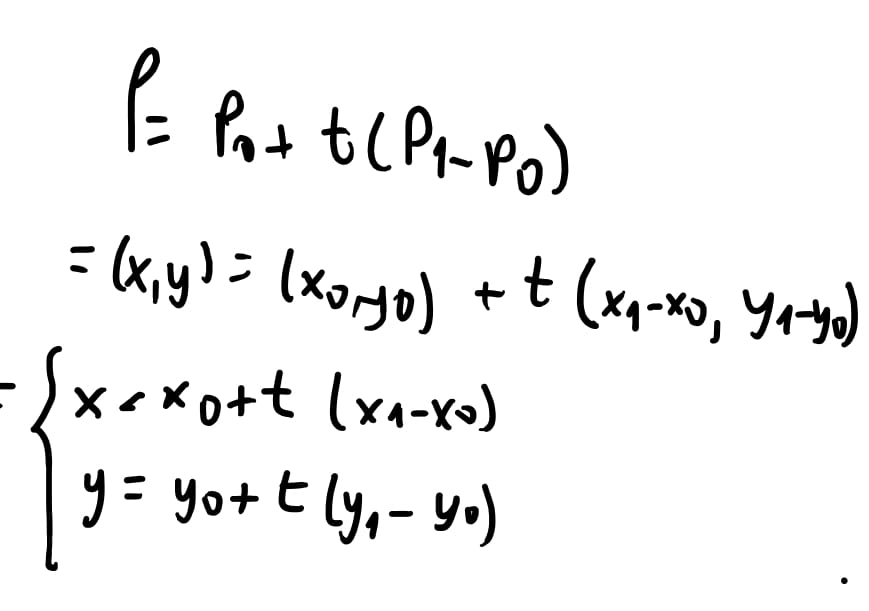 P = P₀ + t(P₁ - P₀)
= (x, y) = (x₀, y₀) + t (x₁ - x₀, y₁ - y₀)
= { x = x₀ + t (x₁ - x₀)
y = y₀ + t (y₁ - y₀)